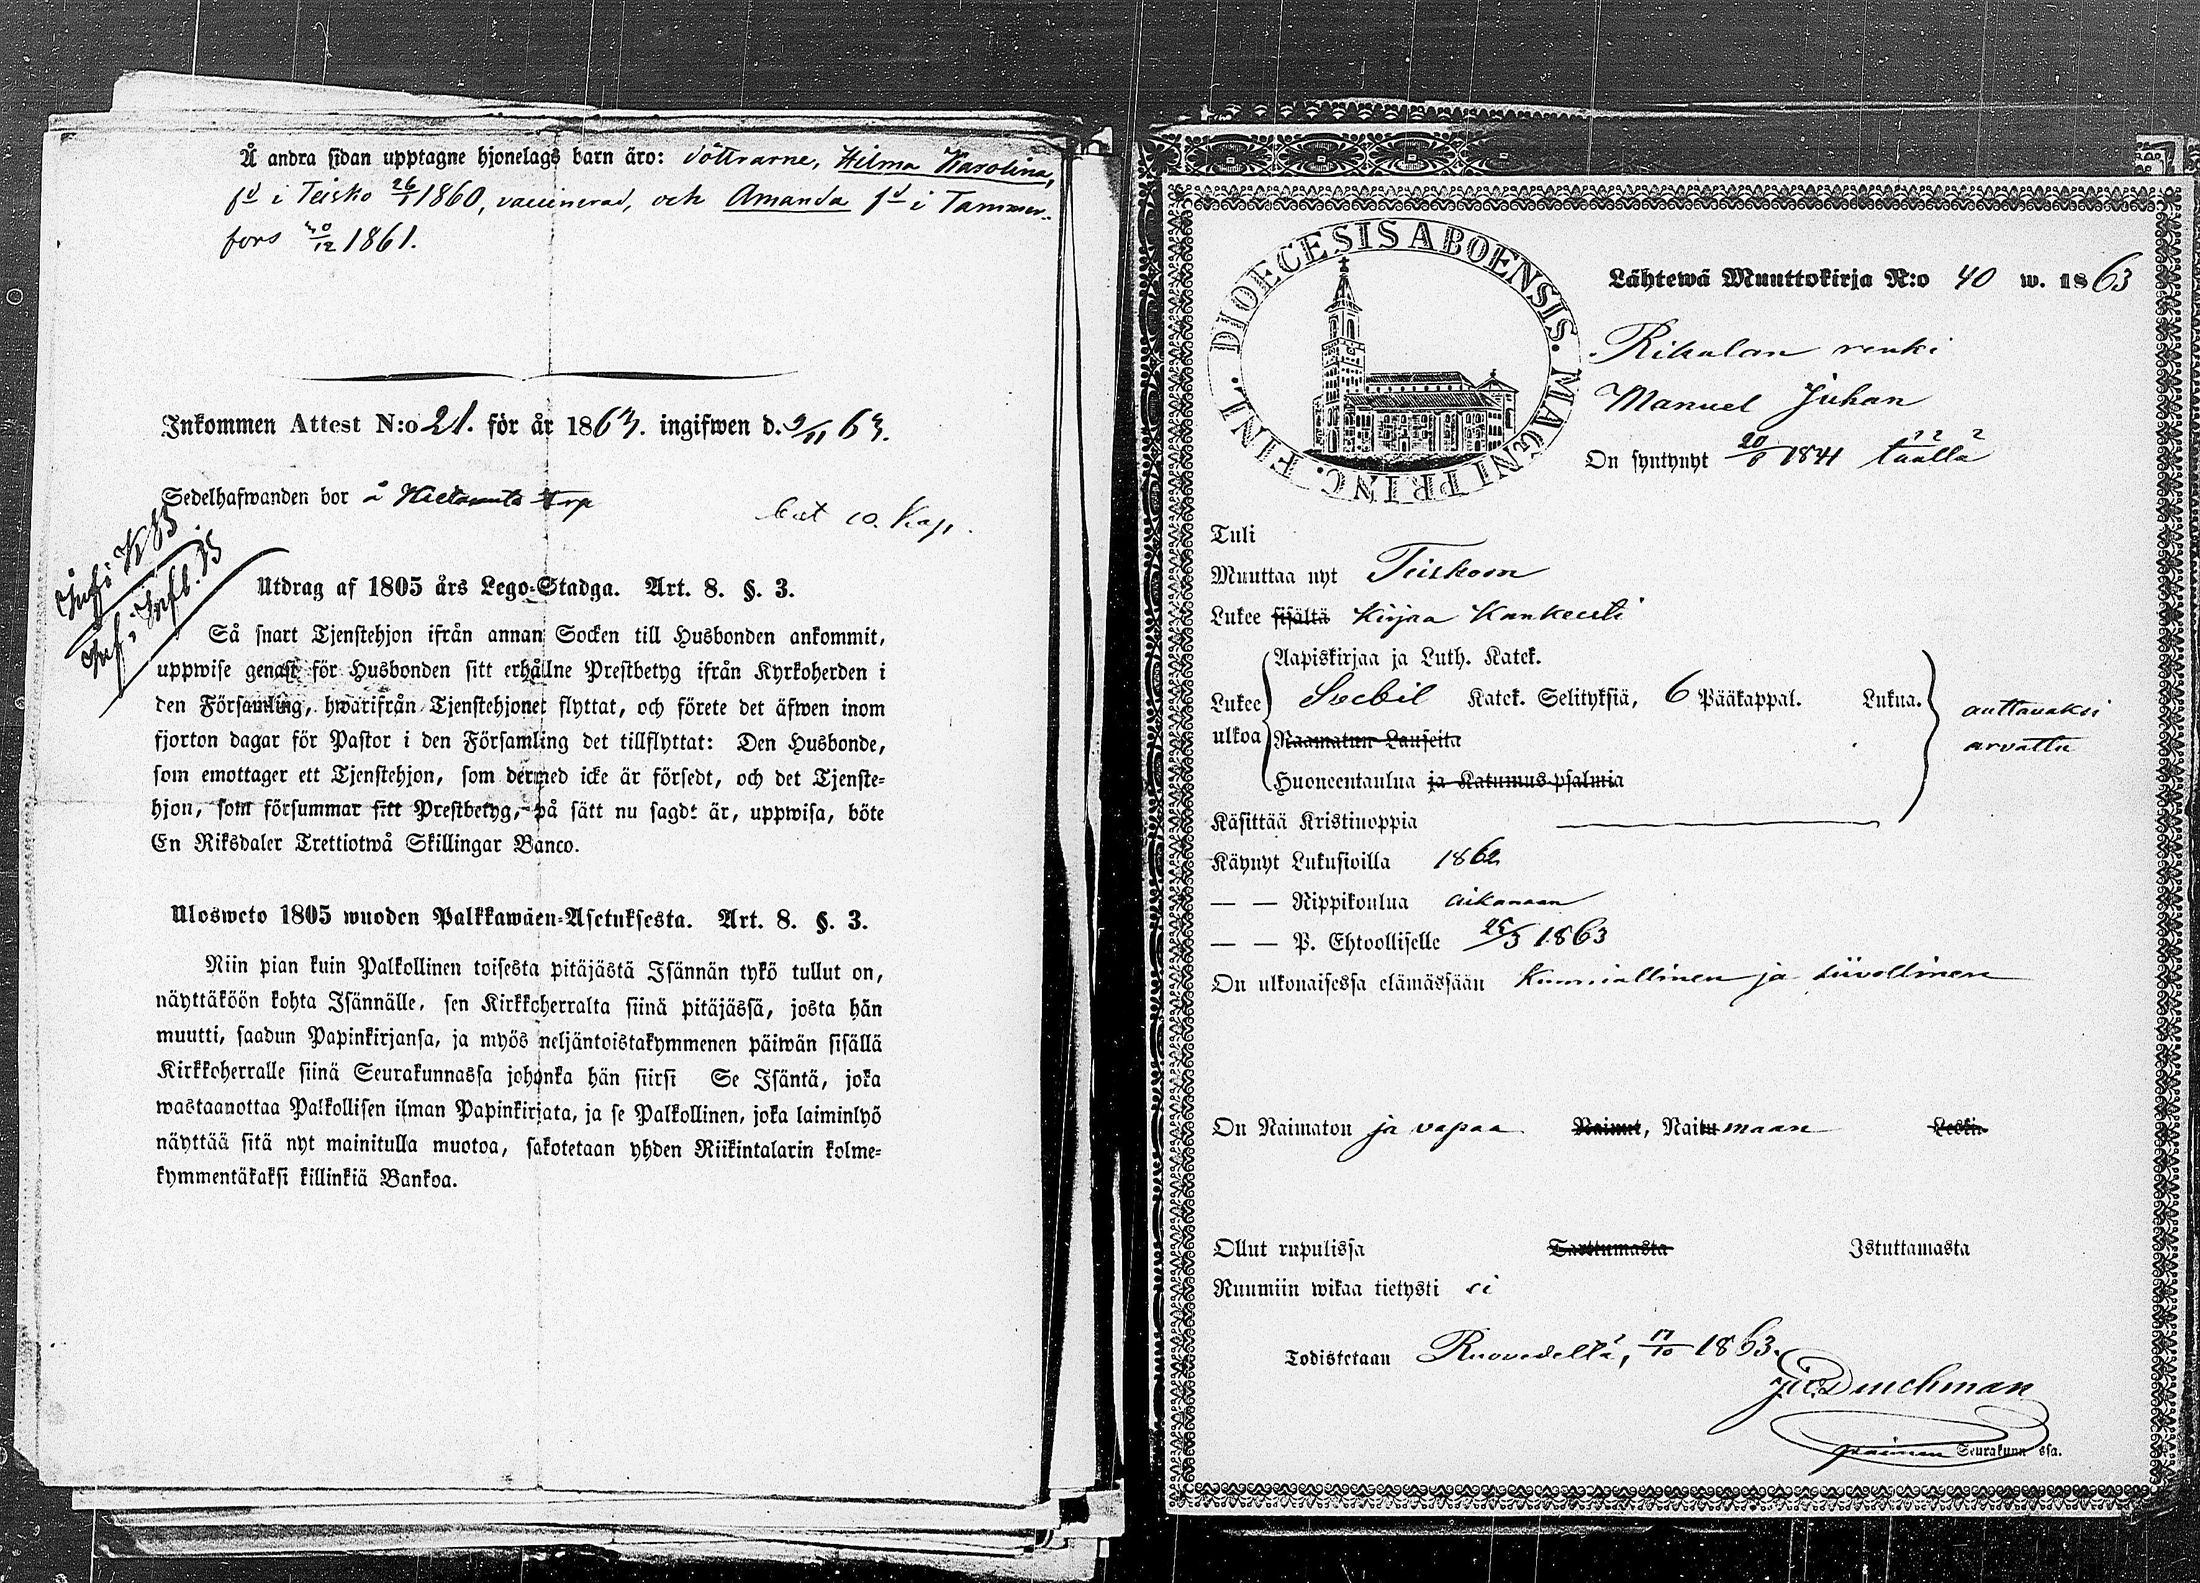 Å andra sidan upptagne hjonelags barn äro: döttrarne, Hilma Karolina,
fd i Teisko 26/1 1860, vaccinerad, och Amanda fd i Tammer-
fors 30/12 1861.
Inkommen Attest N:o 21. för år 1863. ingifwen d. 9/11 63.
Sedelhafwanden bor å torp
10. Kap.
Inf i KB
Inf i Infl. B
Utdrag af 1805 års Lego-Stadga. Art. 8. §. 3.
Så snart Tjenstehjon ifrån annan Socken till Husbonden ankommit,
uppwise genast för Husbonden sitt erhållne Prestbetyg ifrån Kyrkoherden i
den Församling, hwarifrån Tjenstehjonet flyttat, och förete det äfwen inom
fjorton dagar för Pastor i den Församling det tillflyttat: Den Husbonde,
som emottager ett Tjenstehjon, som dermed icke är försedt, och det Tjenste-
hjon, som försummar sitt Prestbetyg, på sätt nu sagdt är, uppwisa, böte
En Riksdaler Trettiotwå Skillingar Banco.
Ulosweto 1805 wuoden Palkkawäen-Asetuksesta. Art. 8. §. 3.
Niin pian kuin Palkollinen toisesta pitäjästä Isännän tykö tullut on,
näyttäköön kohta Isännälle, sen Kirkkoherralta siinä pitäjässä, josta hän
muutti, saadun Papinkirjansa, ja myös neljäntoistakymmenen päiwän sisällä
Kirkkoherralle siinä Seurakunnassa johonka hän siirsi Se Isäntä, joka
wastaanottaa Palkollisen ilman Papinkirjata, ja se Palkollinen, joka laiminlyö
näyttää sitä nyt mainitulla muotoa, sakotetaan yhden Riikintalarin kolme-
kymmentäkaksi killinkiä Bankoa.
DIOECESIS ABOENSIS. MAGNI PRINC. FINL.
Lähtewä Muuttokirja N:o 40 w. 1863
Rikalan renki
Manuel Juhan
On syntynyt 20/6 1841 täällä
Tuli
Muuttaa nyt Teiskoon
Lukee sisältä kirjaa kankeesti
Aapiskirjaa ja Luth. Katek.
Lukee Svebil Katek. Selityksiä, 6 Pääkappal. Lukua.
ulkoa Raamatun Lauseita
auttavaksi
arvattu
Huoneentaulua ja Katumus-psalmia
Käsittää Kristinoppia
Käynyt Lukusioilla 1862
— — Rippikoulua aikanaan
— — P. Ehtoolliselle 25/5 1863
On ulkonaisessa elämässään Kunniallinen ja siivollinen
On Naimaton ja vapaa Nainut, Naitumaan Leski
Ollut rupulissa Tarttumasta Istuttamasta
Ruumiin wikaa tietysti ei
Todistetaan Ruovedellä, 17/10 1863.
Seurakunnassa.